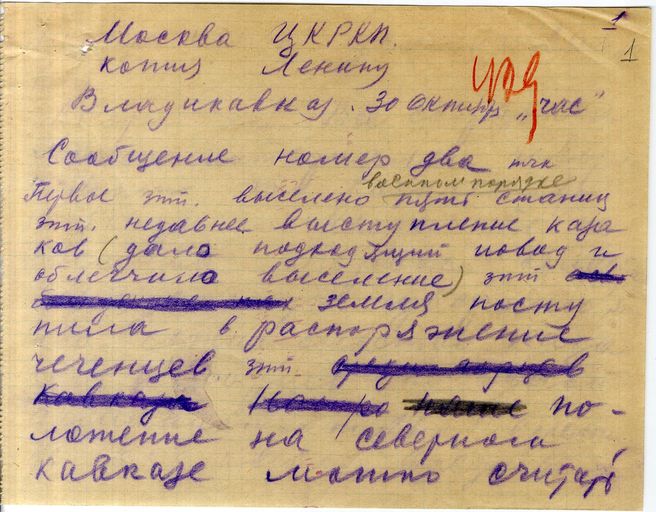 1
1
Москва ЦКРКП.
копия Ленину
Владикавказ. 30 Октября „час“
Сообщение номер два тчк
военном порядке
Первое зпт. выселено пять станиц
зпт. недавнее выступление каза
ков (дало подходящий повод и
облегчило выселение) зпт
земля посту
пила в распоряжение
чеченцев зпт.
Кавказа по-
ложение на северном
кавказе можно считать